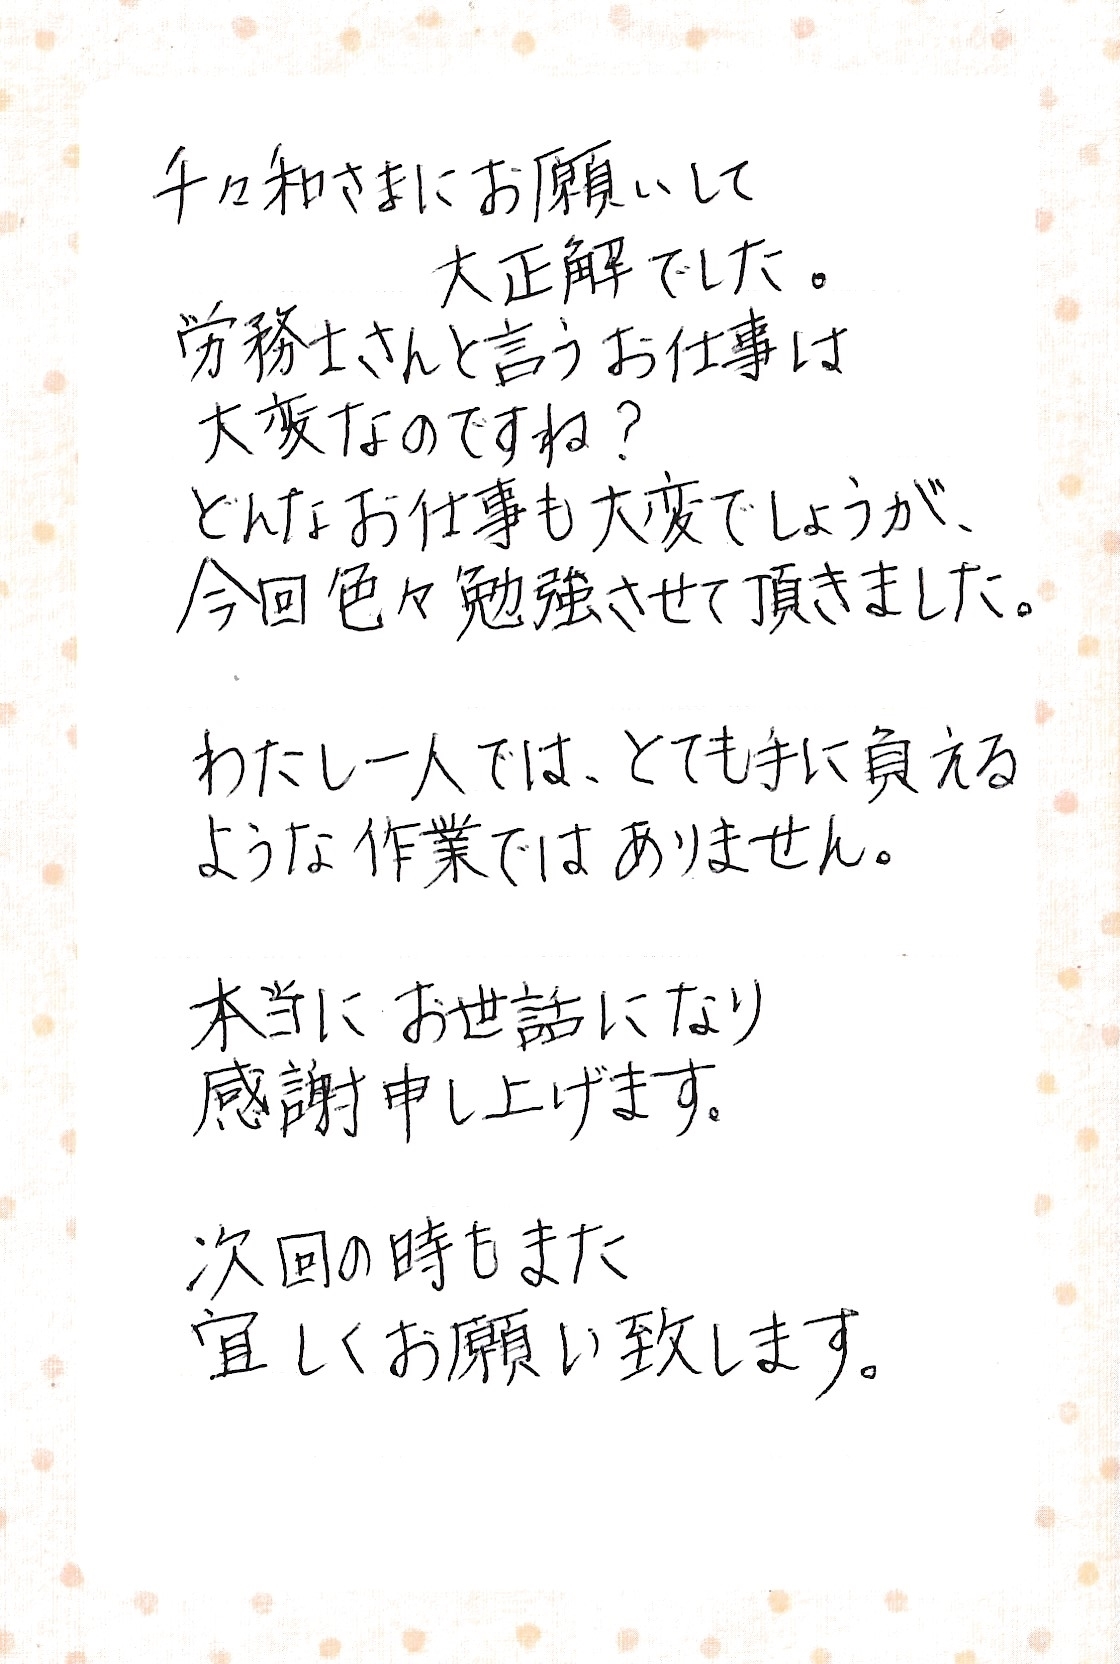 千々和さまにお願いして
大正解でした。
労務士さんと言うお仕事は
大変なのですね？
どんなお仕事も大変でしょうが、
今回色々勉強させて頂きました。
わたし一人では、とても手に負える
ような作業ではありません。
本当にお世話になり
感謝申し上げます。
次回の時もまた
宜しくお願い致します。